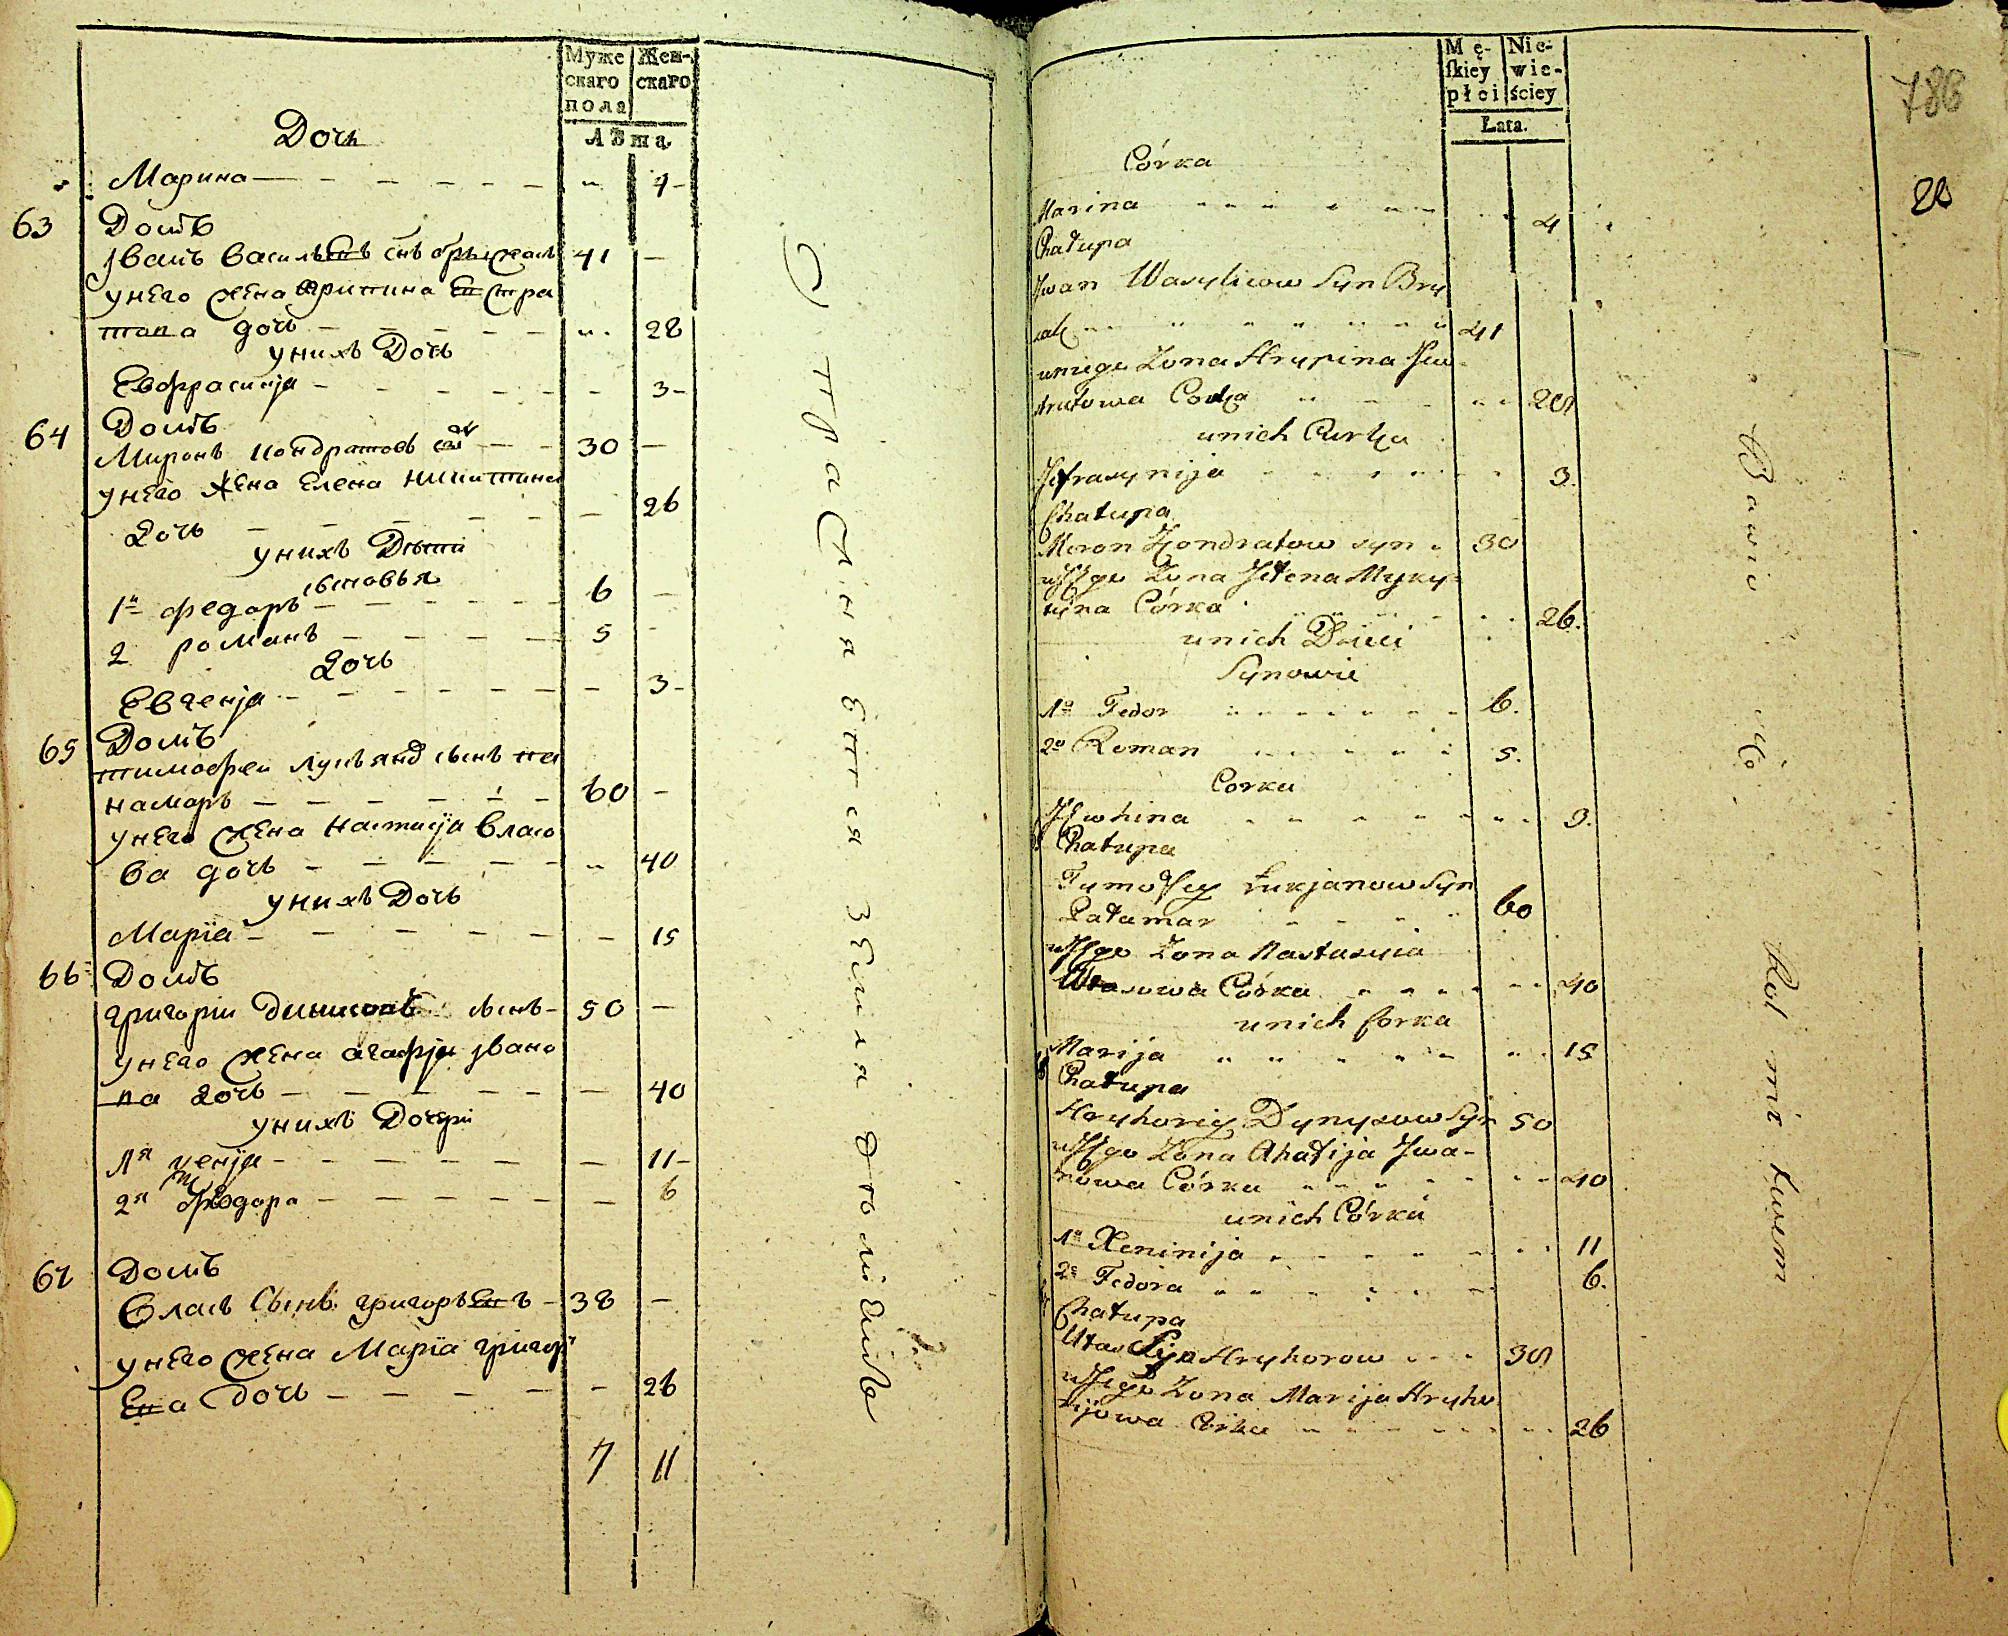 Муже Жен-
скаго скаго
пола
Лѣта
Дочь
Марина — — — — — — „ 4 —
63 Домъ
Іванъ Васильевъ снъ 41 —
унего жена
дочь — — — — — „ 28
унихъ Дочь
Евфрасинія — — — — — — 3 —
64 Домъ
Миронъ Кондратовъ — — 30 —
унего жена Елена Никитина
дочь — — — — — — 26
унихъ Дѣти
сыновья
1й Федоръ — — — — — 6 —
2 романъ — — — — 5 —
дочь
Евгенія — — — — — — 3 —
65 Домъ
тимофеи Лукьяновъ сынъ па
намаръ — — — — — — 60 —
унего жена Настасія Власо
ва дочь — — — — — „ 40
унихъ Дочь
Марїа — — — — — — — 15
66 Домъ
григоріи Динисовъ сынъ — 50 —
унего жена агафія Івано
ва дочь — — — — — — 40
унихъ Дочери
1я ксенія — — — — — — — 11 —
2я Федора — — — — — — 6
67 Домъ
Власъ Сынъ григорьевъ — 38 —
унего жена Марїа григорь
ева дочь — — — — — 26
7 11
Упражняется землядѣліемъ
Mę- Nie-
skiey wie-
płci ściey
Łata.
786
Córka
Marina 4
Chałupa
Jwan Wasyliow Syn Bry
41
uniego Żona Hrypina Jew
stratowa Corka 28
unich Curka
Jefrasynija 3.
Chałupa
Miron Kondratow syn 30
Żona Jełena Myky-
tyna Córka 26.
unich Dzieci
Synowie
1o Fedor 6.
2o Roman 5.
Corka
Jewhina 3.
Chałupa
Tymofiey Łukjanow Syn
Pałamar 60
Żona Nastasyia
Własowa Córka 40
unich Corka
Marija 15
Chałupa
Hryhoriy Dynysow Syn 50
Żona Ahafija Jwa-
nowa Córka 40
unich Córki
1a Xeninija 11
2a Fedora 6.
Chałupa
Własۥ Syn Hryhorow 38
Żona Marija Hryho
ryjowa Córka 26
Bawie się Rolnictwem